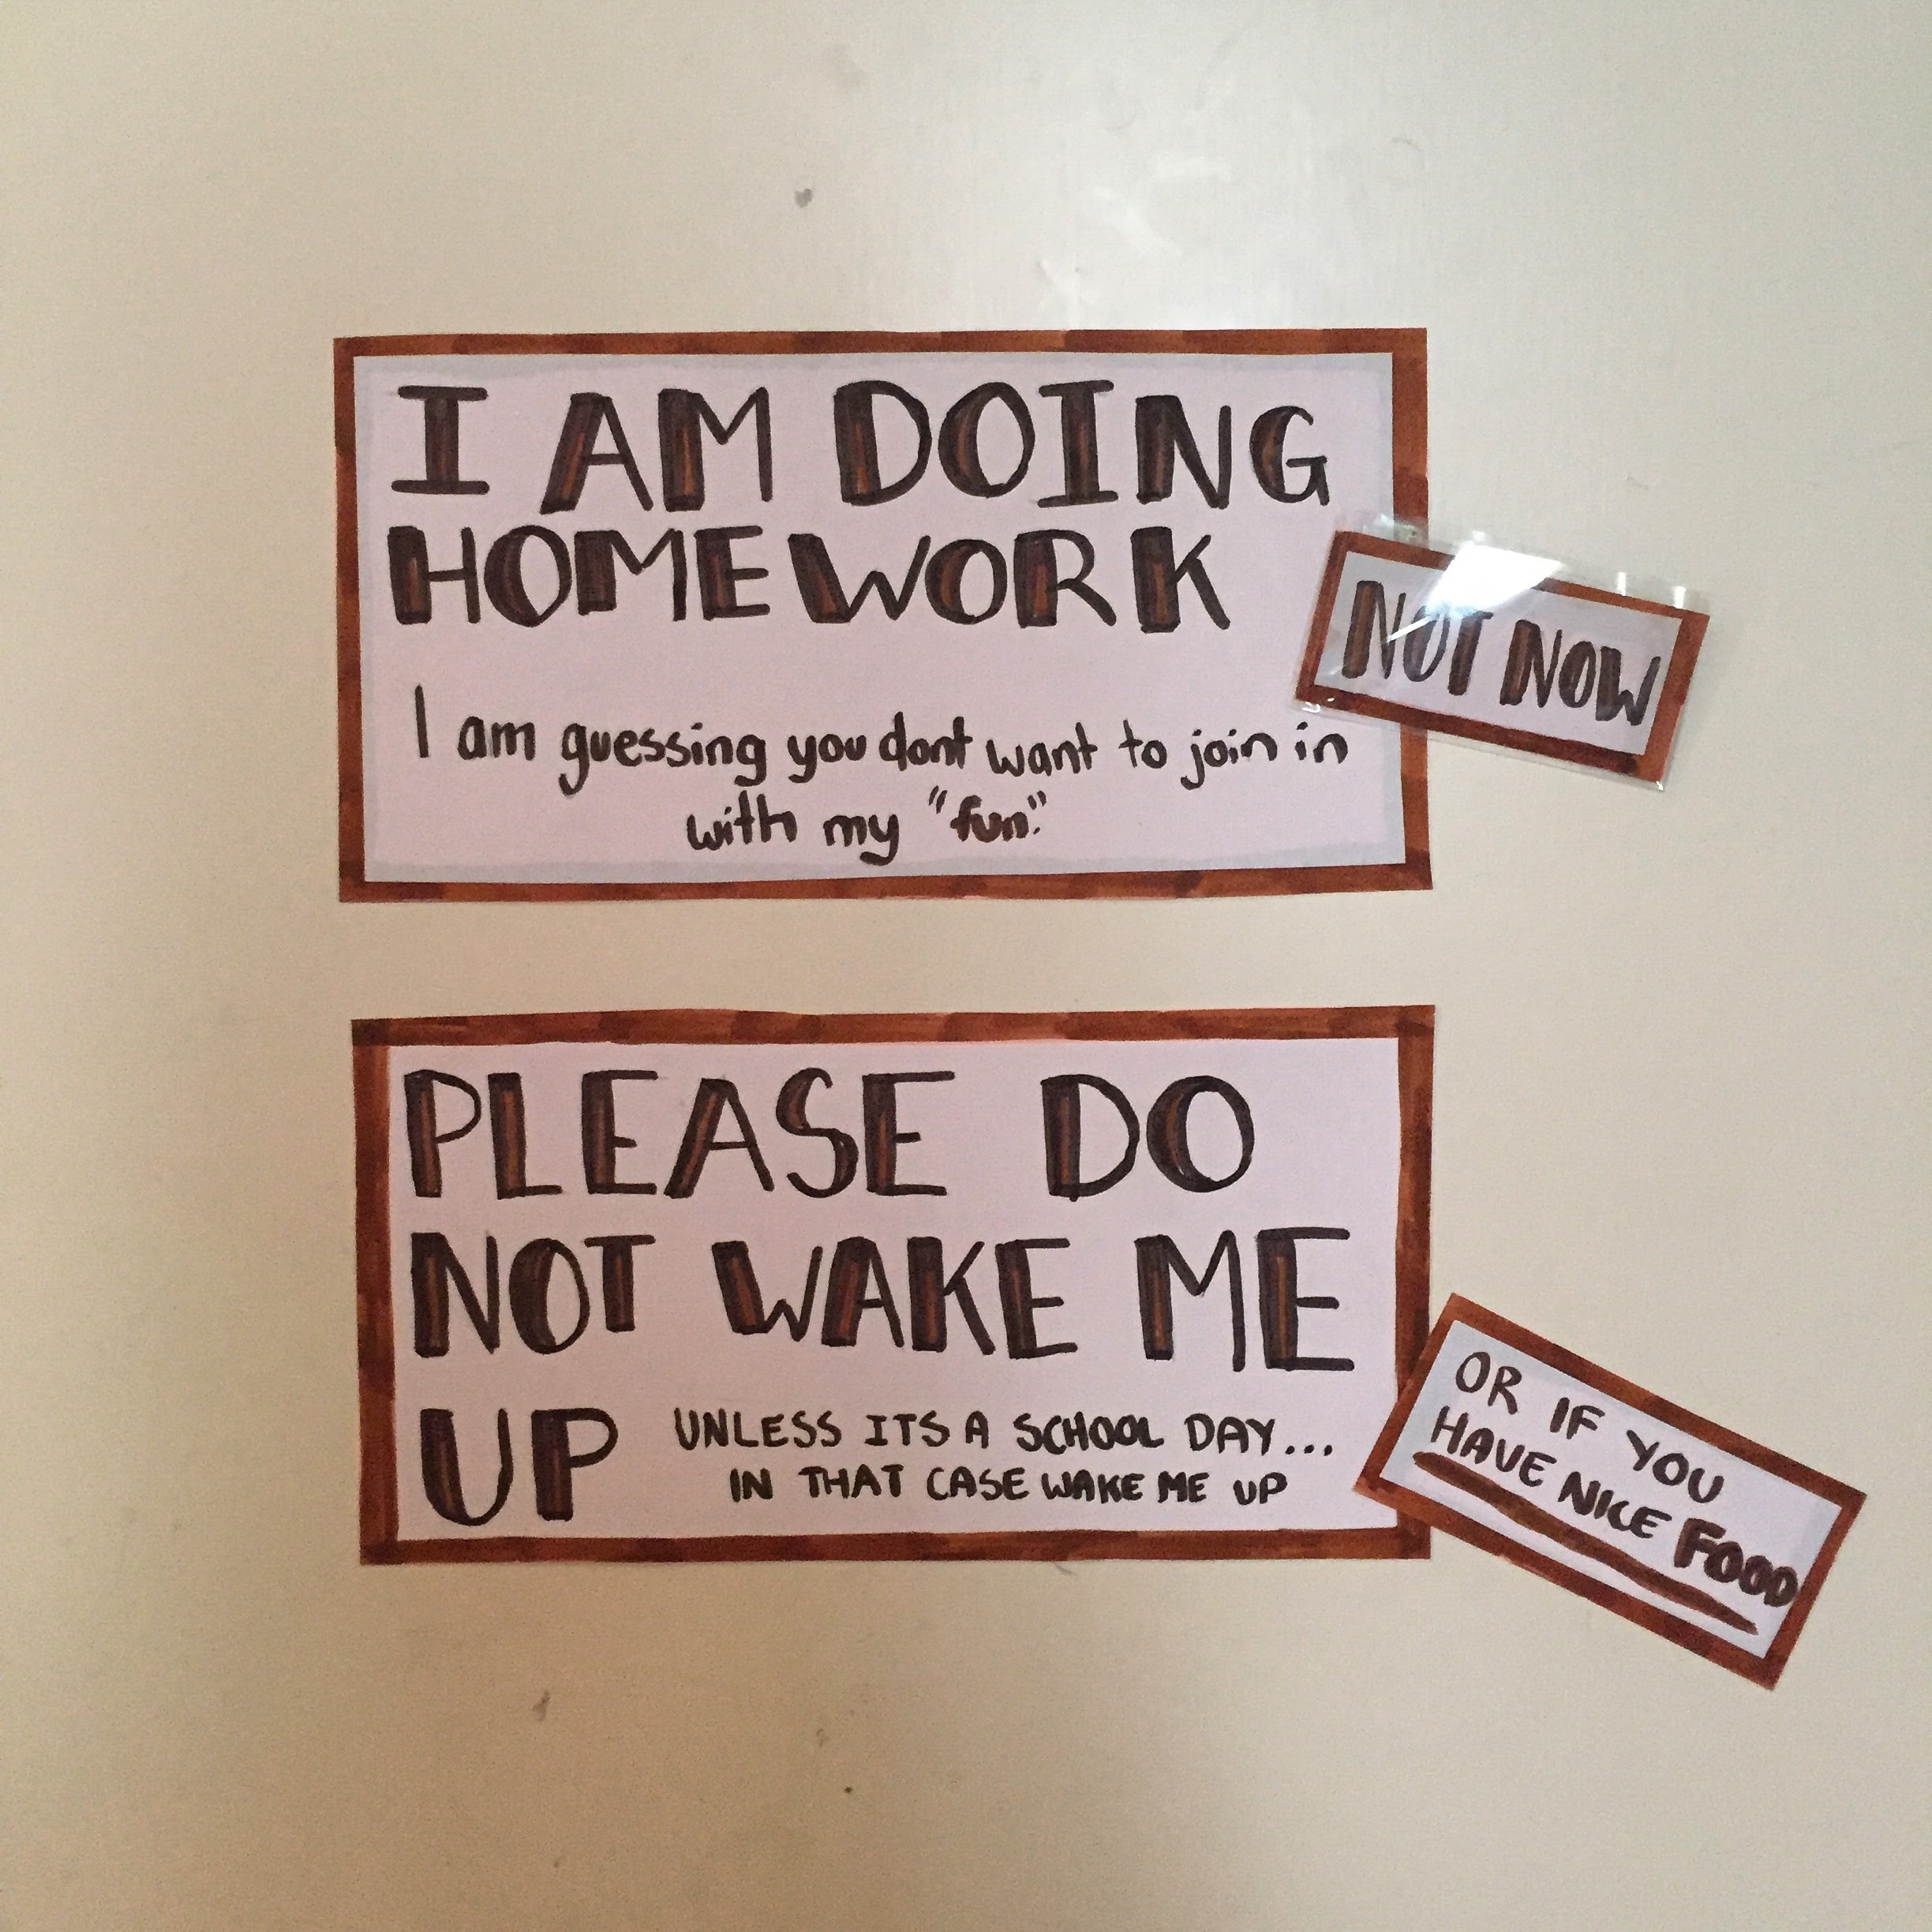 I AM DOING
HOMEWORK
I am guessing you dont want to join in
with my "fun."
NOT NOW
PLEASE DO
NOT WAKE ME
UP
UNLESS ITS A SCHOOL DAY...
IN THAT CASE WAKE ME UP
OR IF YOU
HAVE NICE FOOD